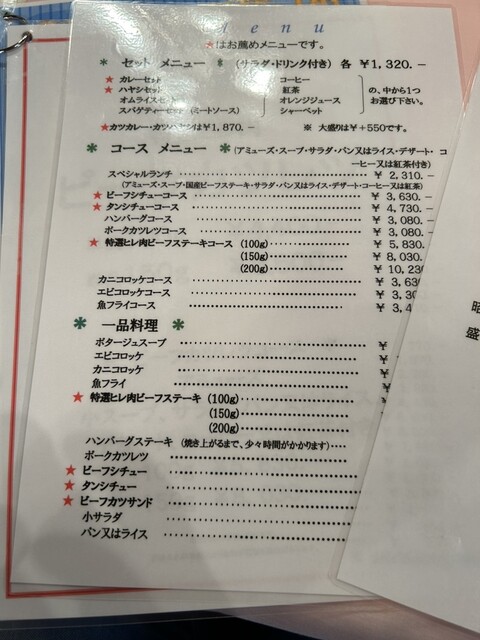 Menu
★はお薦めメニューです。
＊ セット メニュー ＊ (サラダ・ドリンク付き) 各 ￥1,320.－
★ カレーセット コーヒー
★ ハヤシセット 紅茶 の、中から1つ
オムライスセット オレンジジュース お選び下さい。
スパゲティーセット (ミートソース) シャーベット
★カツカレー・カツハヤシは￥1,870.－ ※ 大盛りは￥+550です。
＊ コース メニュー ＊ (アミューズ・スープ・サラダ・パン又はライス・デザート・コ
ーヒー又は紅茶付き)
スペシャルランチ ￥ 2,310.－
(アミューズ・スープ・国産ビーフステーキ・サラダ・パン又はライス・デザート・コーヒー又は紅茶)
★ ビーフシチューコース ￥ 3,630.－
★ タンシチューコース ￥ 4,730.－
ハンバーグコース ￥ 3,080.－
ポークカツレツコース ￥ 3,080.－
★ 特選ヒレ肉ビーフステーキコース (100g) ￥ 5,830.
(150g) ￥ 8,030.
(200g) ￥ 10,230
カニコロッケコース ￥ 3,63
エビコロッケコース ￥ 3,30
魚フライコース ￥ 3,4
＊ 一品料理 ＊
ポタージュスープ ￥
エビコロッケ ￥
カニコロッケ ￥
魚フライ ￥
★ 特選ヒレ肉ビーフステーキ (100g)
(150g)
(200g)
ハンバーグステーキ (焼き上がるまで、少々時間がかかります)
ポークカツレツ
★ ビーフシチュー
★ タンシチュー
★ ビーフカツサンド
小サラダ
パン又はライス
盛